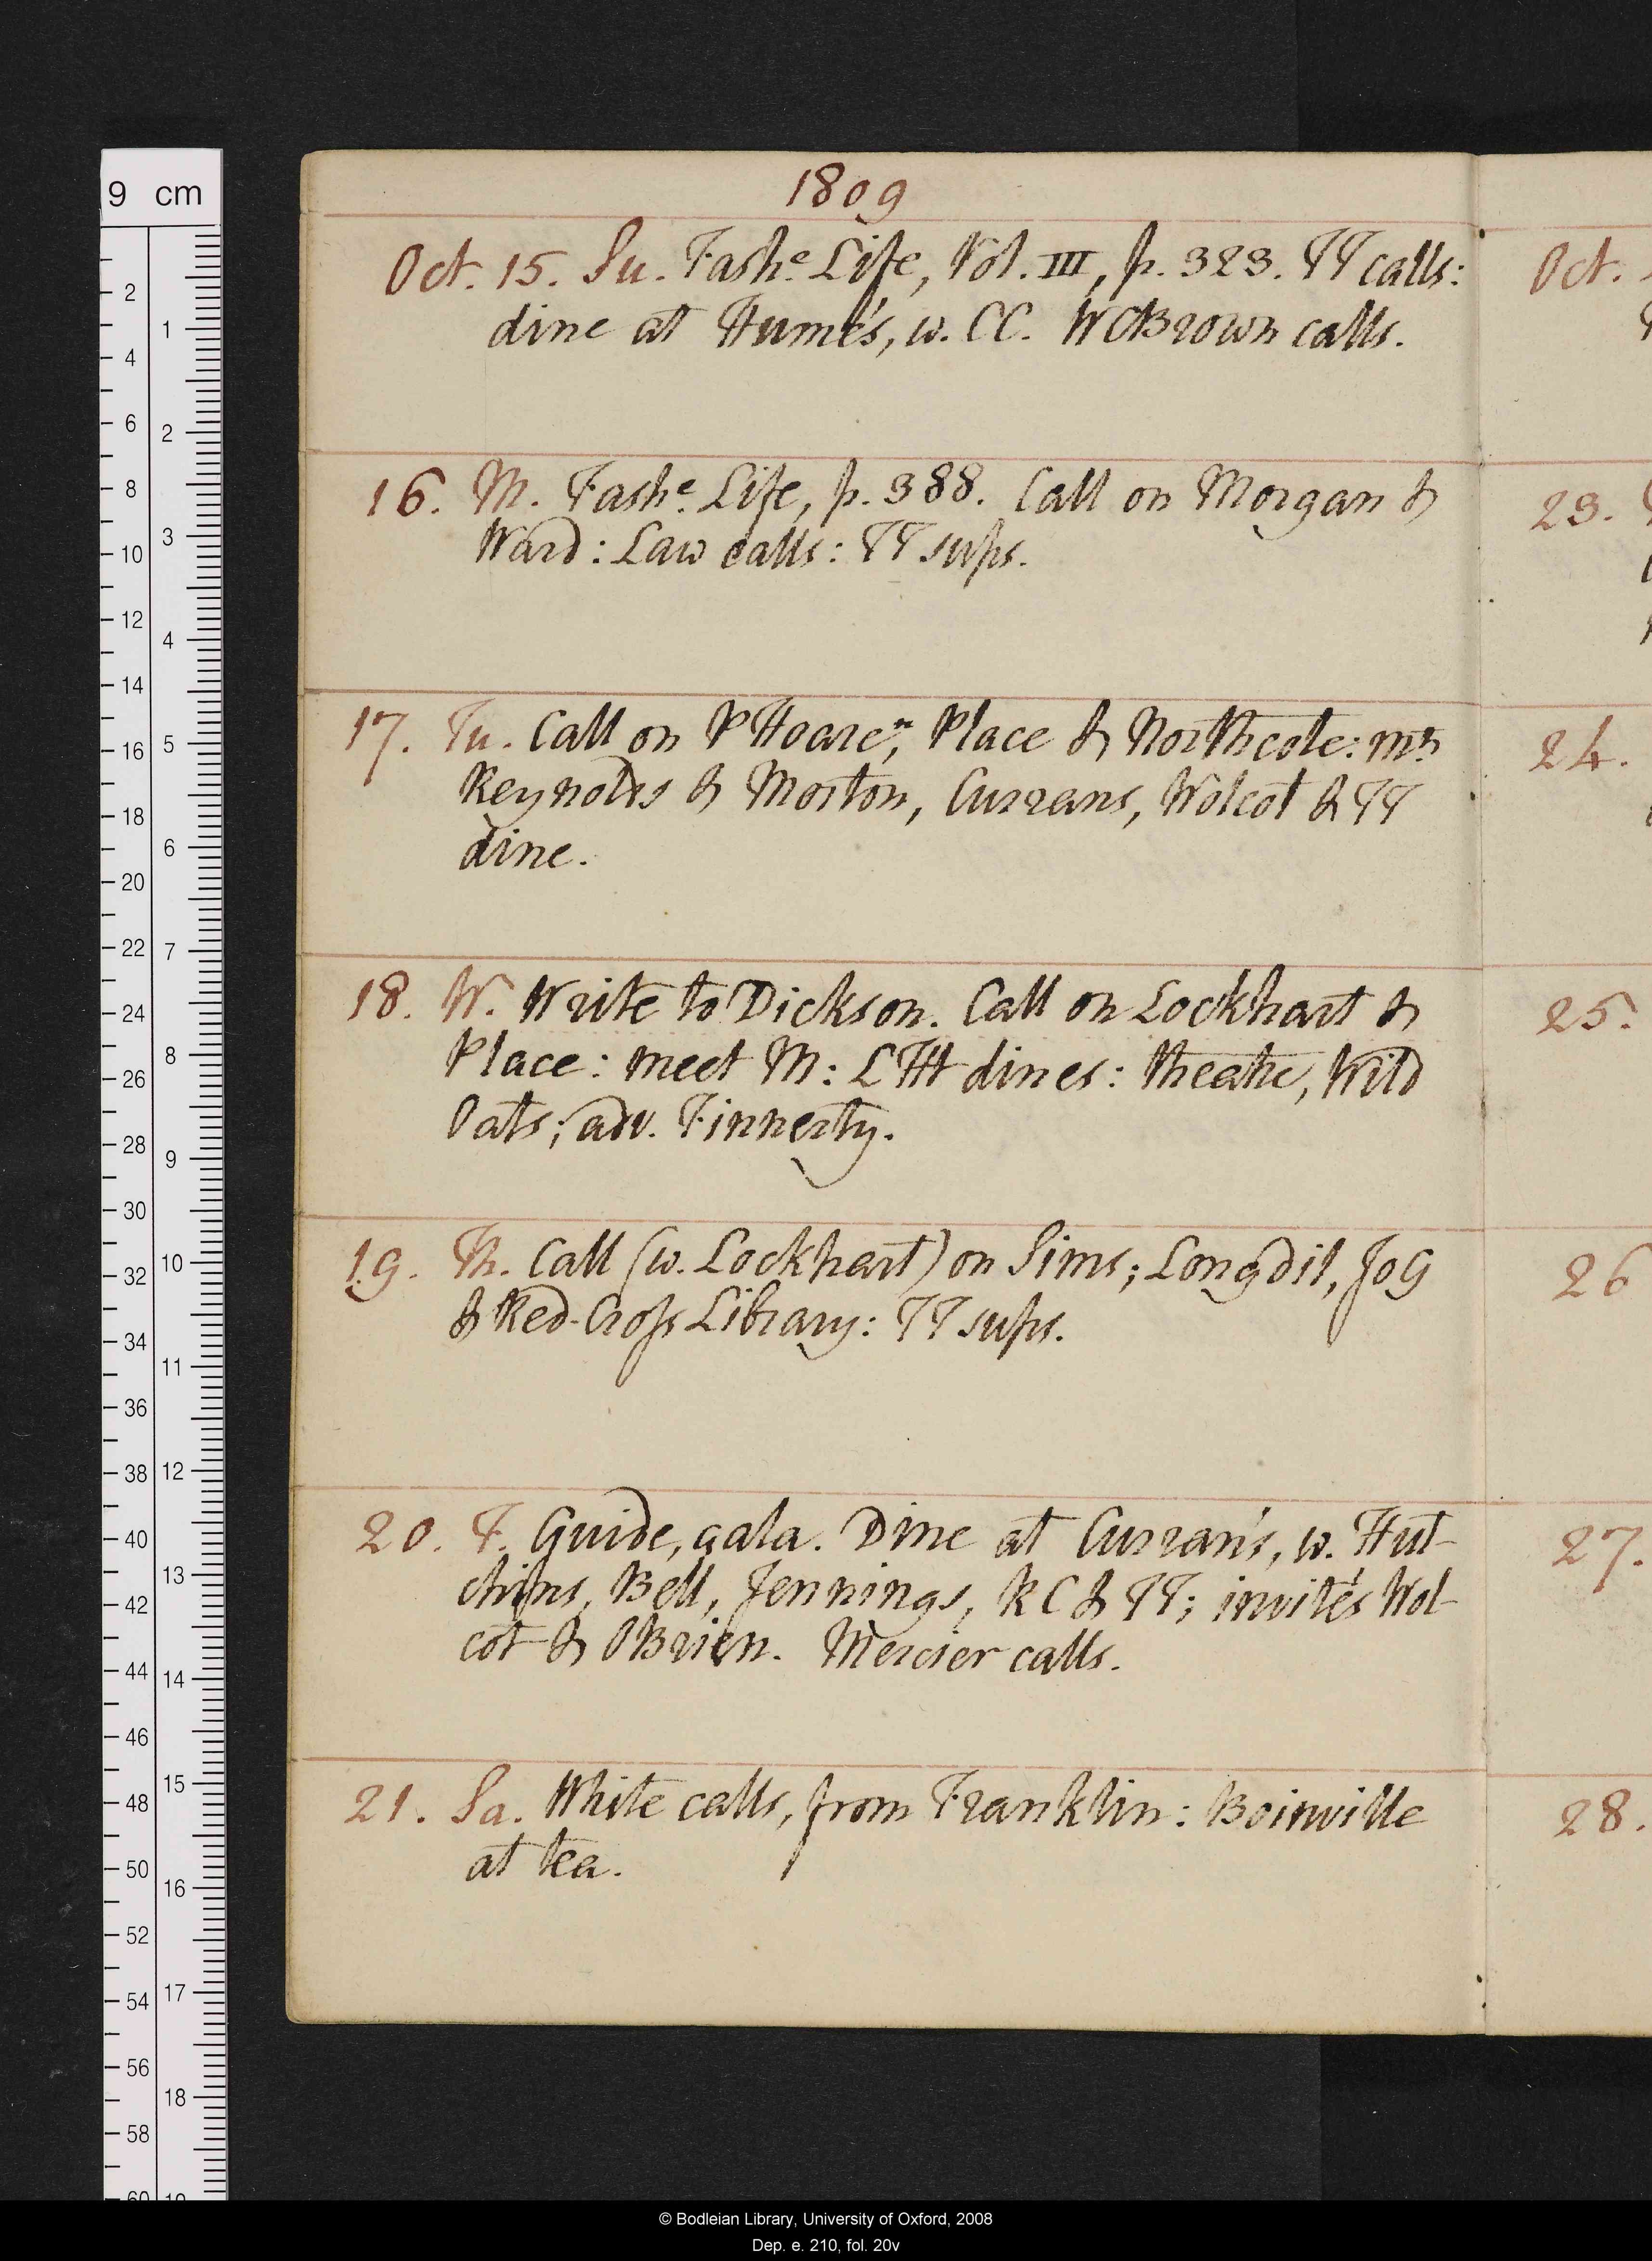 1809
Oct. 15. Su. Fashe. Life, Vol. III, p. 323. TT calls:
dine at Hume's, w. CC. WCBrown calls.
16. M. Fashe. Life, p. 388. Call on Morgan &
Ward: Law calls: TT sups.
17. Tu. Call on PHoare n, Place & Northcote: mrs
Reynolds & Morton, Currans, Wolcot & TT
dine.
18. W. Write to Dickson. Call on Lockhart &
Place: meet M: LTH dines: theatre, Wild
Oats; adv. Finnerty.
19. Th. Call (w. Lockhart) on Sims; Longdil, JoG
& Red-Cross Library: TT sups.
20. F. Guide, gala. Dine at Curran's, w. Hut-
chins, Bell, Jennings, RC & TT; invités Wol-
cot & OBrien. Mercier calls.
21. Sa. White calls, from Franklin: Boinville
at tea.
Oct.
23.
24.
25.
26
27.
28.
9 cm
© Bodleian Library, University of Oxford, 2008
Dep. e. 210, fol. 20v